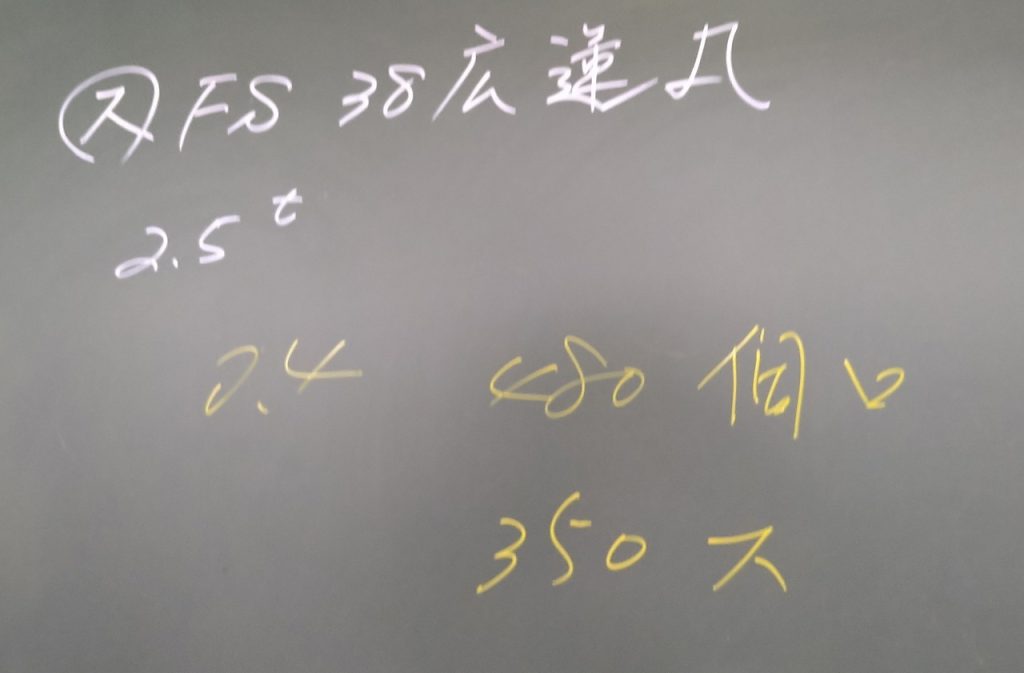 ㋜ FS 38広蓮凡
2.5t
2.4 480個口
350ス